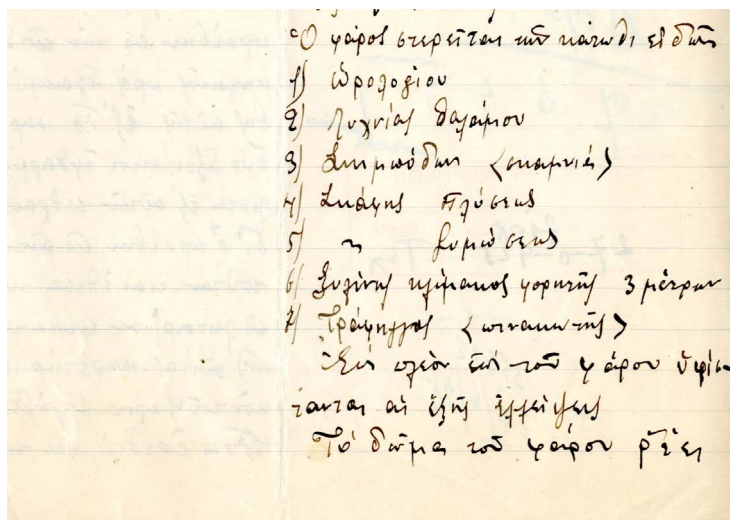 Ὁ φάρος στερεῖται τῶν κάτωθι εἰδῶν
1) Ὡρολογίου
2) Λυχνίας θαλάμου
3) Σκιμπόδων (σκαμνιά)
4) Σκάφης πλύσεως
5) " ζυμώσεως
6) Ξυλίνης κλίμακος φορητῆς 3 μέτρων
7) Τράφηγγος (πινακωτῆς)
Ἐπὶ πλέον ἐπὶ τοῦ φάρου ὑφίσ-
τανται αἱ ἑξῆς ἐλλείψεις
Τὸ δῶμα τοῦ φάρου ρέει